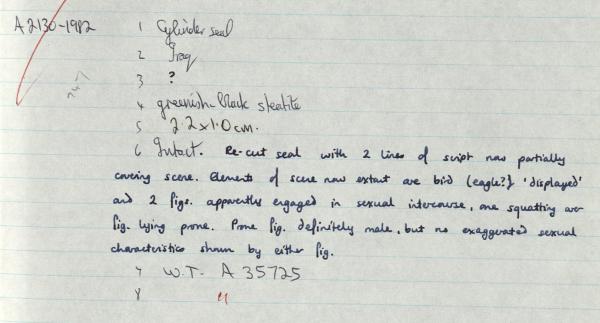 A2130-1982 1 Cylinder seal
2 Iraq
3 ?
4 greenish-black steatite
5 2.2x1.0cm.
6 Intact. Re-cut seal with 2 lines of script now partially
covering scene. Elements of scene now extant are bird (eagle?) 'displayed'
and 2 figs. apparently engaged in sexual intercourse, one squatting over
fig. lying prone. Prone fig. definitely male, but no exaggerated sexual
characteristics shown by either fig.
7 W.T. A 35725
8